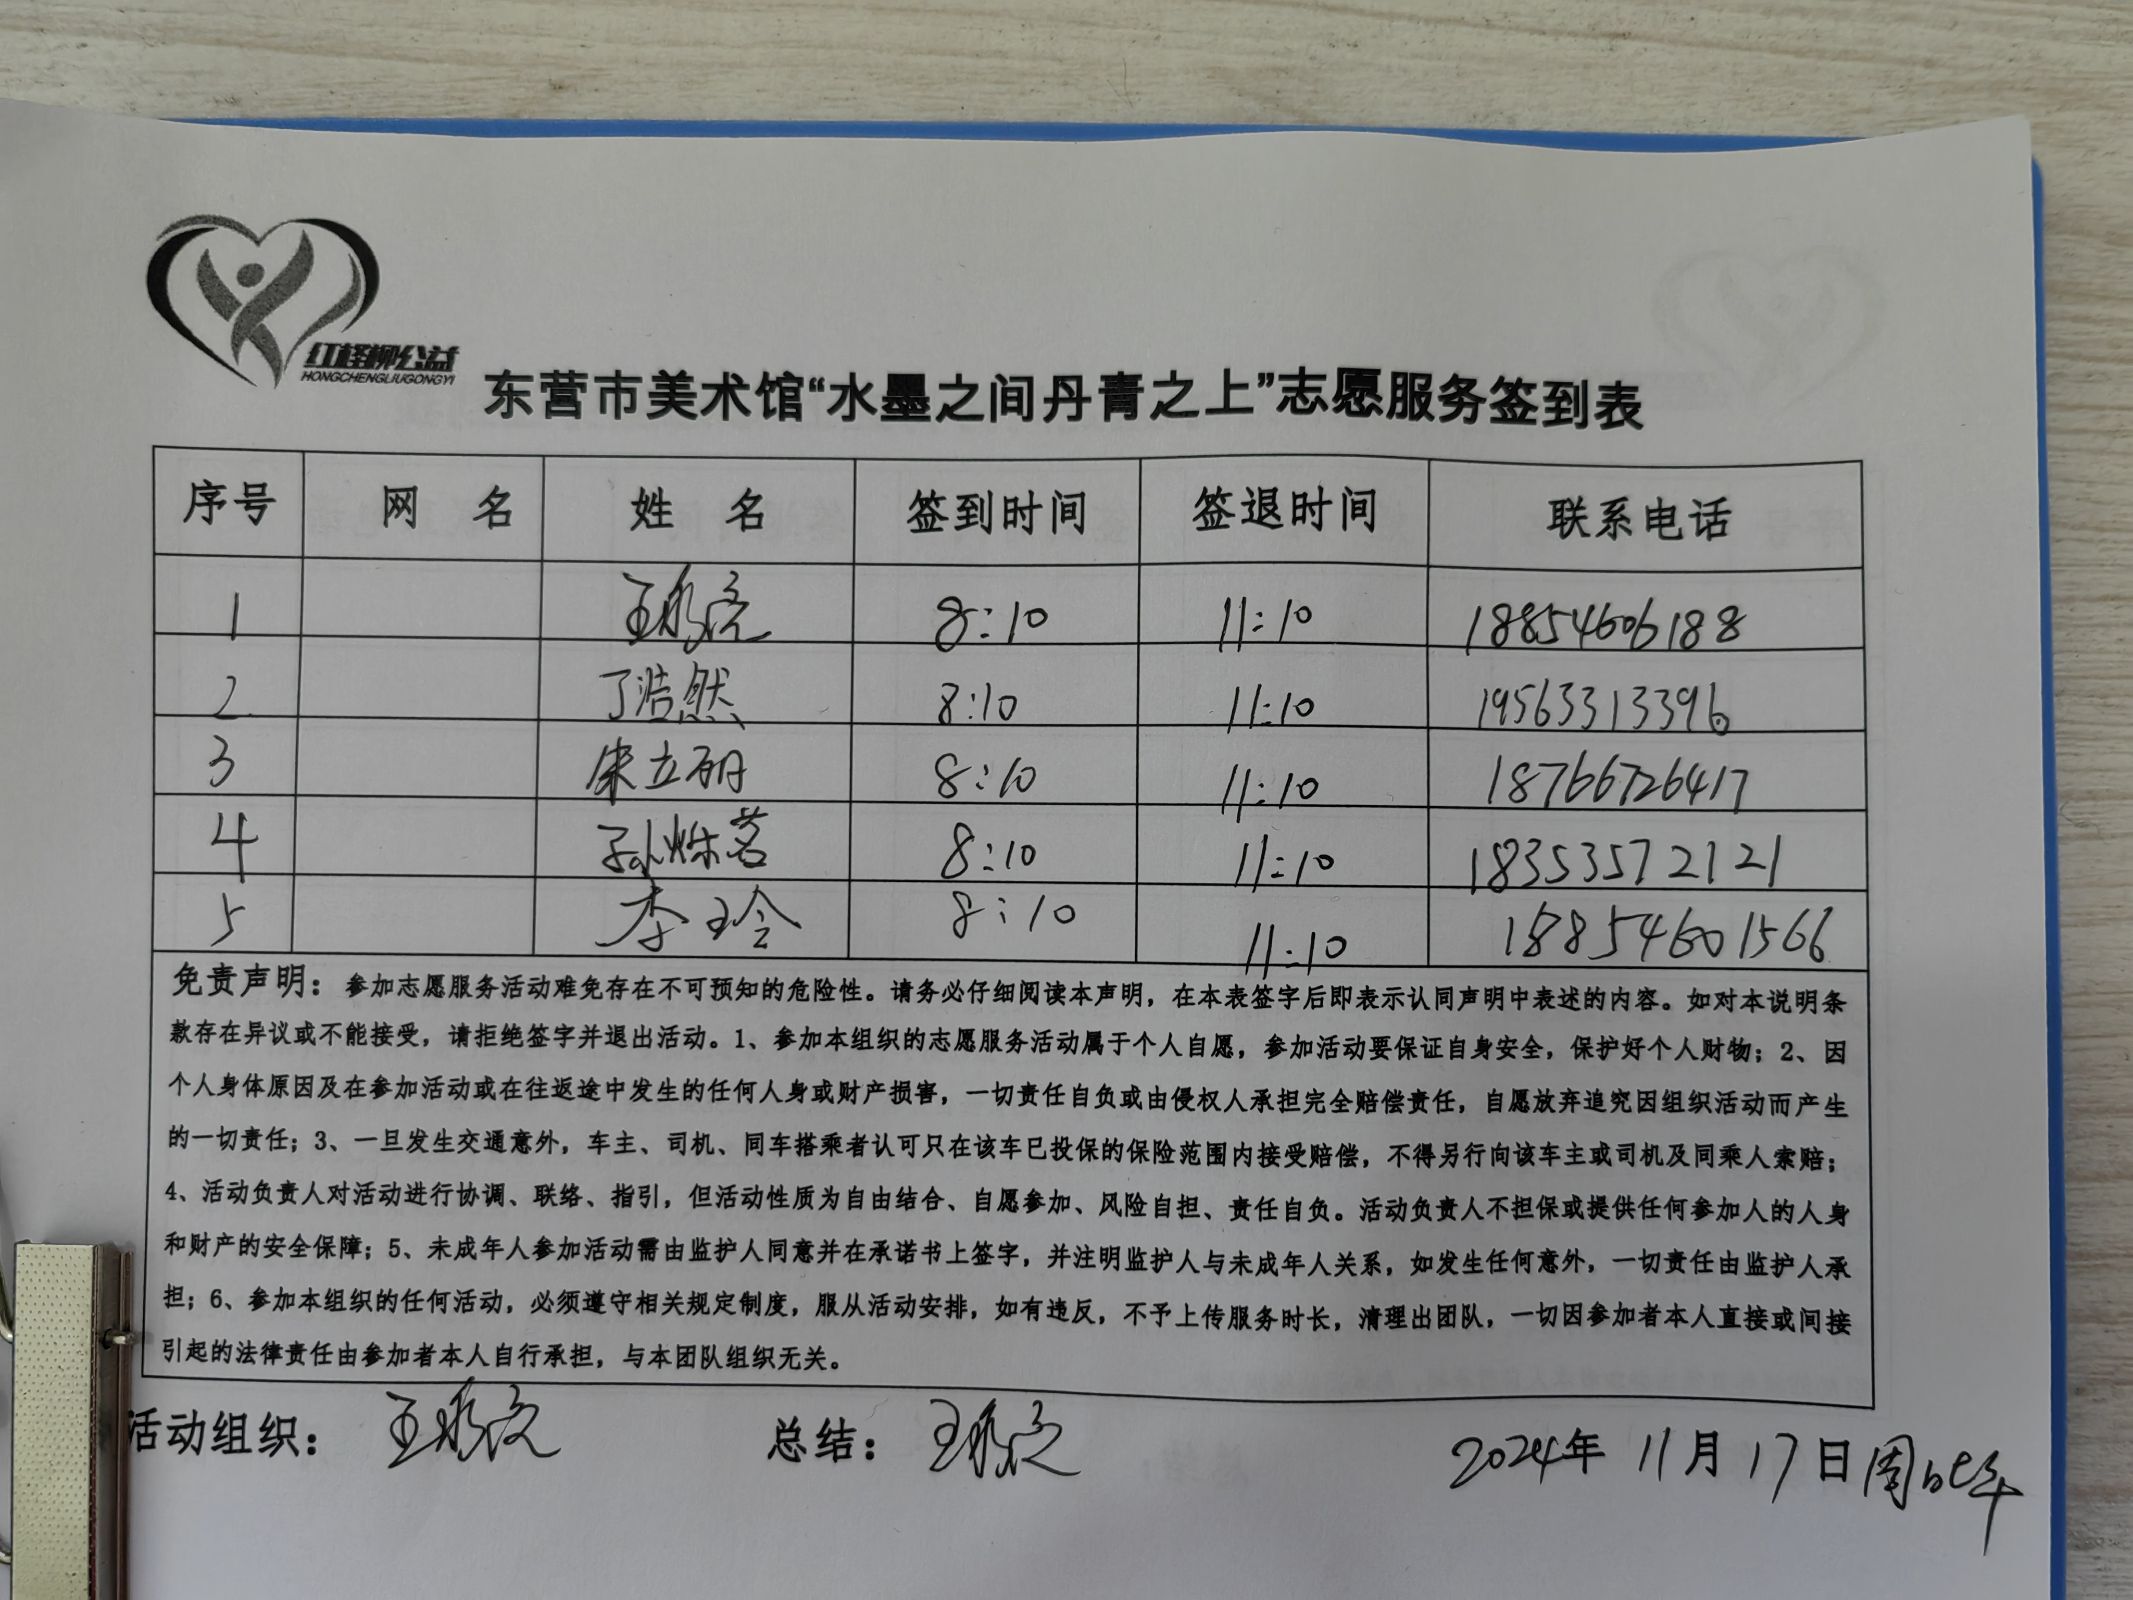 红柽柳公益
HONGCHENGLIUGONGYI
东营市美术馆“水墨之间丹青之上”志愿服务签到表
序号 网 名 姓 名 签到时间 签退时间 联系电话
1 王 8:10 11:10 18854606188
2 丁浩然 8:10 11:10 19563313396
3 朱立丽 8:10 11:10 18766726417
4 孙烁茗 8:10 11:10 18353572121
5 李玲 8:10 11:10 18854601566
免责声明：参加志愿服务活动难免存在不可预知的危险性。请务必仔细阅读本声明，在本表签字后即表示认同声明中表述的内容。如对本说明条
款存在异议或不能接受，请拒绝签字并退出活动。1、参加本组织的志愿服务活动属于个人自愿，参加活动要保证自身安全，保护好个人财物；2、因
个人身体原因及在参加活动或在往返途中发生的任何人身或财产损害，一切责任自负或由侵权人承担完全赔偿责任，自愿放弃追究因组织活动而产生
的一切责任；3、一旦发生交通意外，车主、司机、同车搭乘者认可只在该车已投保的保险范围内接受赔偿，不得另行向该车主或司机及同乘人索赔；
4、活动负责人对活动进行协调、联络、指引，但活动性质为自由结合、自愿参加、风险自担、责任自负。活动负责人不担保或提供任何参加人的人身
和财产的安全保障；5、未成年人参加活动需由监护人同意并在承诺书上签字，并注明监护人与未成年人关系，如发生任何意外，一切责任由监护人承
担；6、参加本组织的任何活动，必须遵守相关规定制度，服从活动安排，如有违反，不予上传服务时长，清理出团队，一切因参加者本人直接或间接
引起的法律责任由参加者本人自行承担，与本团队组织无关。
活动组织： 王 总结： 王 2024年 11月17日周日上午